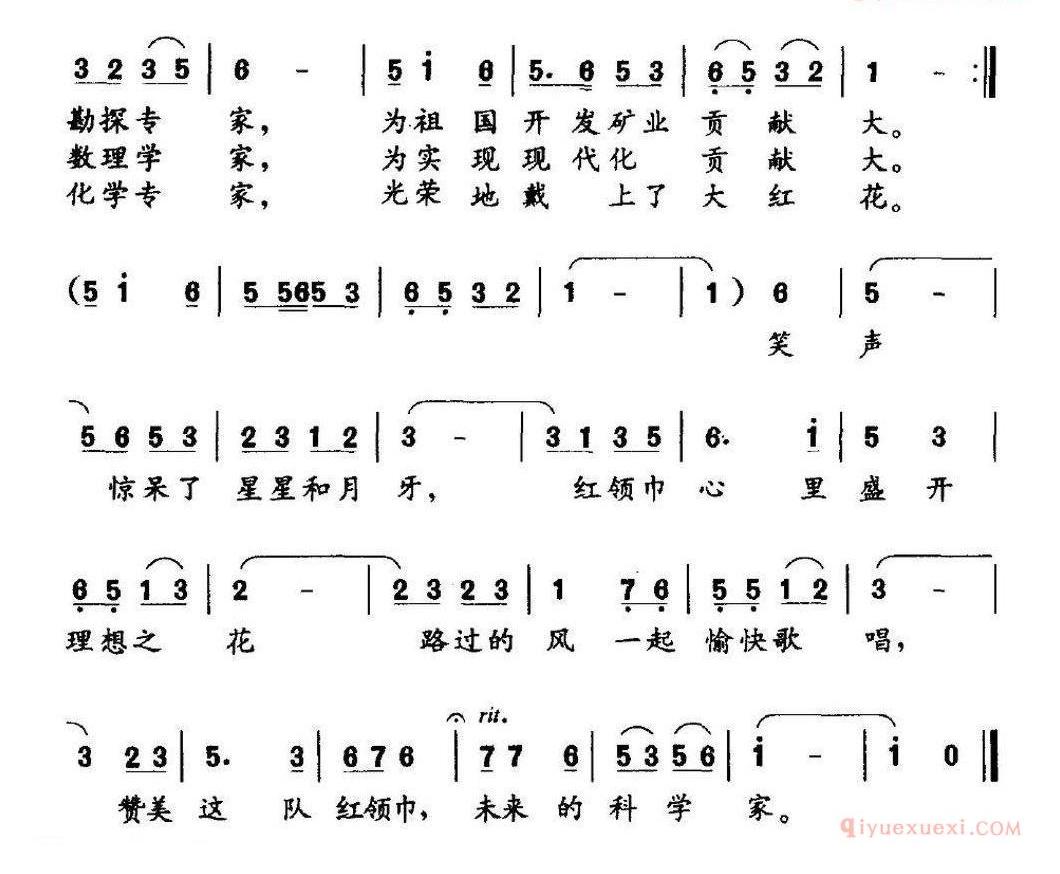 3 2 3 5 | 6 - | 5 i 6 | 5. 6 5 3 | 6 5 3 2 | 1 - :||
勘探专 家, 为祖 国 开 发矿业 贡 献 大。
数理学 家, 为实 现 现 代化 贡 献 大。
化学专 家, 光荣 地 戴 上了 大 红 花。
(5 i 6 | 5 5653 | 6 5 3 2 | 1 - | 1 ) 6 | 5 - |
笑 声
5 6 5 3 | 2 3 1 2 | 3 - | 3 1 3 5 | 6. i | 5 3 |
惊呆了 星星和月 牙, 红领巾 心 里 盛 开
6 5 1 3 | 2 - | 2 3 2 3 | 1 7 6 | 5 5 1 2 | 3 - |
理想之 花 路过的 风 一起 愉快歌 唱,
rit.
3 2 3 | 5. 3 | 6 7 6 | 7 7 6 | 5 3 5 6 | i - | i 0 ||
赞美 这 队 红领巾, 未来 的 科 学 家。
qiyuexuexi.COM